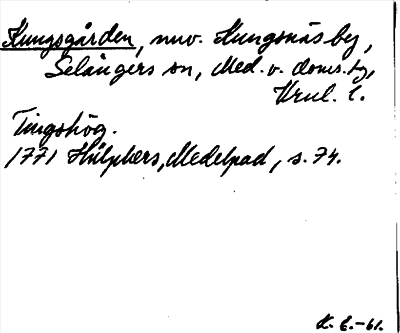 Kungsgården, nuv. Kungsnäs by,
Selångers sn, Med. v. doms. tg,
Vrnl. l.
Tingshög.
1771 Hülphers, Medelpad, s. 74.
K. E.-61.